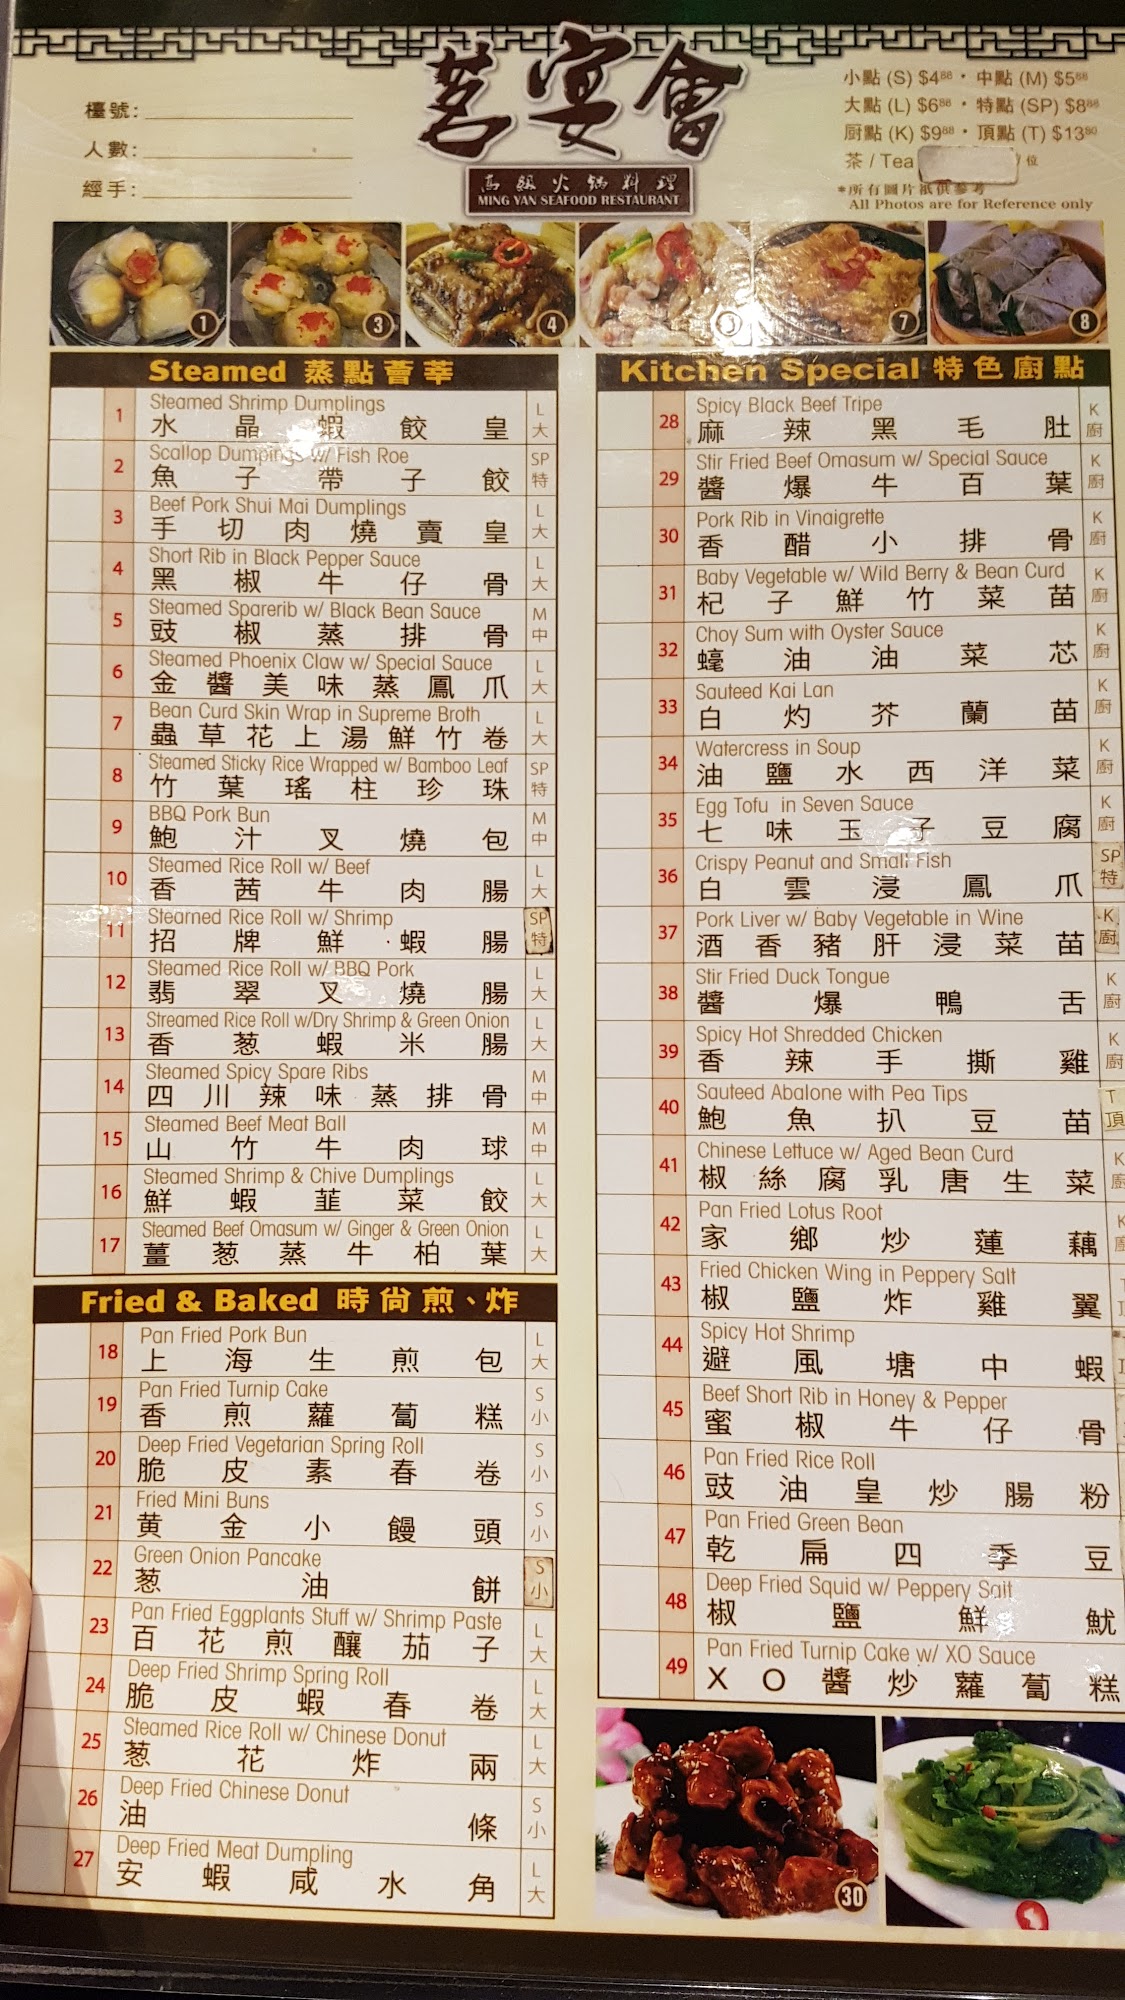 茗宴會
高級火鍋料理
MING YAN SEAFOOD RESTAURANT
檯號:
人數:
經手:
小點 (S) $4⁸⁸ · 中點 (M) $5⁸⁸
大點 (L) $6⁸⁸ · 特點 (SP) $8⁸⁸
厨點 (K) $9⁸⁸ · 頂點 (T) $13⁸⁰
茶 / Tea / 位
*所有圖片祇供參考
All Photos are for Reference only
1
3
4
7
8
Steamed 蒸點薈萃
1 Steamed Shrimp Dumplings L
水晶蝦餃皇 大
2 Scallop Dumpings w/ Fish Roe SP
魚子帶子餃 特
3 Beef Pork Shui Mai Dumplings L
手切肉燒賣皇 大
4 Short Rib in Black Pepper Sauce L
黑椒牛仔骨 大
5 Steamed Sparerib w/ Black Bean Sauce M
豉椒蒸排骨 中
6 Steamed Phoenix Claw w/ Special Sauce L
金醬美味蒸鳳爪 大
7 Bean Curd Skin Wrap in Supreme Broth L
蟲草花上湯鮮竹卷 大
8 Steamed Sticky Rice Wrapped w/ Bamboo Leaf SP
竹葉瑤柱珍珠 特
9 BBQ Pork Bun M
鮑汁叉燒包 中
10 Steamed Rice Roll w/ Beef L
香茜牛肉腸 大
11 Steamed Rice Roll w/ Shrimp SP
招牌鮮蝦腸 特
12 Steamed Rice Roll w/ BBQ Pork L
翡翠叉燒腸 大
13 Streamed Rice Roll w/Dry Shrimp & Green Onion L
香葱蝦米腸 大
14 Steamed Spicy Spare Ribs M
四川辣味蒸排骨 中
15 Steamed Beef Meat Ball M
山竹牛肉球 中
16 Steamed Shrimp & Chive Dumplings L
鮮蝦韮菜餃 大
17 Steamed Beef Omasum w/ Ginger & Green Onion L
薑葱蒸牛柏葉 大
Fried & Baked 時尚煎、炸
18 Pan Fried Pork Bun L
上海生煎包 大
19 Pan Fried Turnip Cake S
香煎蘿蔔糕 小
20 Deep Fried Vegetarian Spring Roll S
脆皮素春卷 小
21 Fried Mini Buns S
黄金小饅頭 小
22 Green Onion Pancake S
葱油餅 小
23 Pan Fried Eggplants Stuff w/ Shrimp Paste L
百花煎釀茄子 大
24 Deep Fried Shrimp Spring Roll L
脆皮蝦春卷 大
25 Steamed Rice Roll w/ Chinese Donut L
葱花炸兩 大
26 Deep Fried Chinese Donut S
油條 小
27 Deep Fried Meat Dumpling L
安蝦咸水角 大
Kitchen Special 特色廚點
28 Spicy Black Beef Tripe K
麻辣黑毛肚 廚
29 Stir Fried Beef Omasum w/ Special Sauce K
醬爆牛百葉 廚
30 Pork Rib in Vinaigrette K
香醋小排骨 廚
31 Baby Vegetable w/ Wild Berry & Bean Curd K
杞子鮮竹菜苗 廚
32 Choy Sum with Oyster Sauce K
蠔油油菜芯 廚
33 Sauteed Kai Lan K
白灼芥蘭苗 廚
34 Watercress in Soup K
油鹽水西洋菜 廚
35 Egg Tofu in Seven Sauce K
七味玉子豆腐 廚
36 Crispy Peanut and Small Fish SP
白雲浸鳳爪 特
37 Pork Liver w/ Baby Vegetable in Wine K
酒香豬肝浸菜苗 廚
38 Stir Fried Duck Tongue K
醬爆鴨舌 廚
39 Spicy Hot Shredded Chicken K
香辣手撕雞 廚
40 Sauteed Abalone with Pea Tips T
鮑魚扒豆苗 頂
41 Chinese Lettuce w/ Aged Bean Curd K
椒絲腐乳唐生菜
42 Pan Fried Lotus Root
家鄉炒蓮藕
43 Fried Chicken Wing in Peppery Salt
椒鹽炸雞翼
44 Spicy Hot Shrimp
避風塘中蝦
45 Beef Short Rib in Honey & Pepper
蜜椒牛仔骨
46 Pan Fried Rice Roll
豉油皇炒腸粉
47 Pan Fried Green Bean
乾扁四季豆
48 Deep Fried Squid w/ Peppery Salt
椒鹽鮮魷
49 Pan Fried Turnip Cake w/ XO Sauce
XO醬炒蘿蔔糕
30